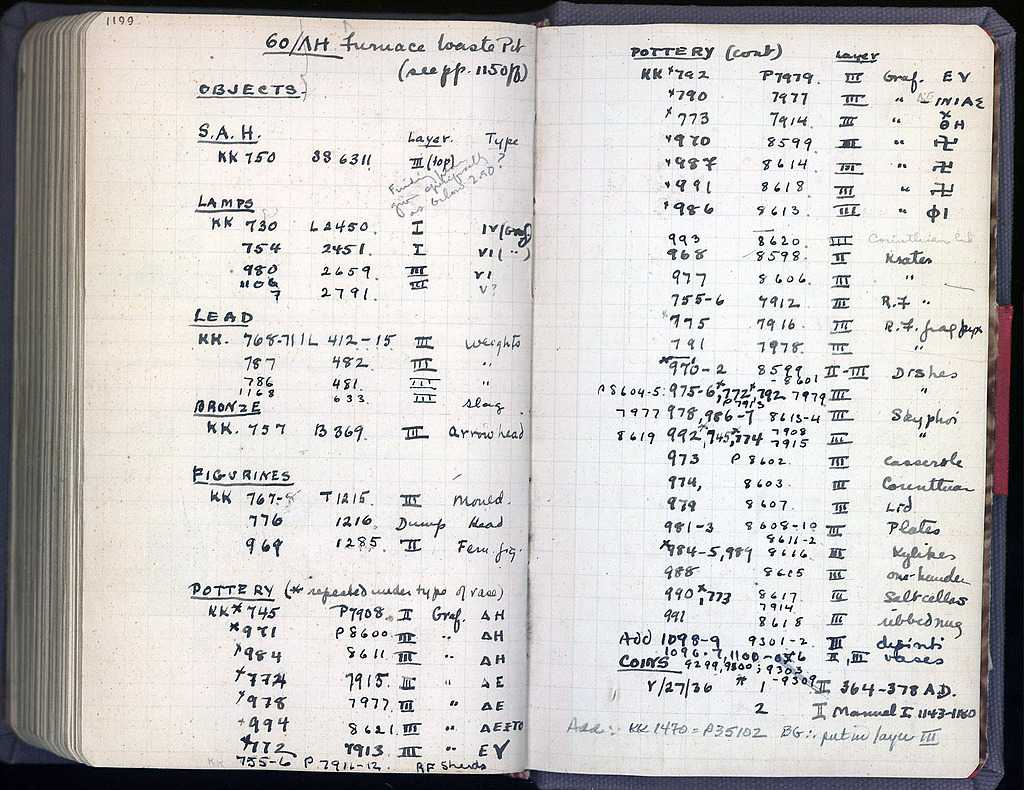 1199
60/ΛH Furnace Waste Pit
(see pp. 1150ff)
OBJECTS
S.A.H. Layer. Type
KK 750 SS 6311 III (top) ?
as below 290.
LAMPS
KK 730 L 2450. I IV (Graf)
754 2451. I VI (")
980 2659. III VI
1106 2791. III V?
7
LEAD
KK. 768-71 IL 412-15 III Weights
787 482 III "
786 481. III "
1168 633. III Slag
BRONZE
KK. 757 B 869. III Arrowhead
FIGURINES
KK 767-8 T 1215 III Mould.
776 1216 Dump Head
969 1285. II Fem. fig.
POTTERY (* repeated under type of vase)
KK *745 P7908. II Graf. ΔH
*971 P 8600 III " ΔH
*984 8611 III " ΔH
*774 7915. III " ΔE
*978 7977. III " ΔE
*994 8621. III " ΔEETO
*772 7913 III " EV
KK 755-6 P 7911-12. RF Sherds
POTTERY (cont) Layer
KK *792 P7979. III Graf. EV
*790 7977 III " -INIAΣ
*773 7914. III " ΘH
*970 8599 III " 卍
*987 8614 III " 卍
*991 8618 III " 卍
*986 8613. III " ΦI
993 8620 III Corinthian lid
968 8598. II Krater
977 8606. III "
755-6 7912. III R.F. "
*775 7916. III R.F. frag pyx
791 7978. III "
*970-2 8599-8601 II-III Dishes
P 8604-5. 975-6, *772, *792 7979 III "
P7913
7977 978, 986-7 8613-4 III Skyphoi
8619 992, *745, *774 7908 7915 III "
973 P 8602. III Casserole
974, 8603. III Corinthian
979 8607. III Lid.
981-3 8608-10 III Plates
8611-2
*984-5, 989 8616. III Kylikes
988 8615 III one-handler
990, *773 8617 7914 III Saltcellar
991 8618 III ribbed mug
Add 1098-9 9301-2 III dipinti
1096-7, 1100-06 II, III vases
COINS 9299, 9300; 9303-9309
V/27/36 # 1 II 364-378 A.D.
2 I Manuel I 1143-1180
Add: KK 1470 = P35102 BG: put in layer III